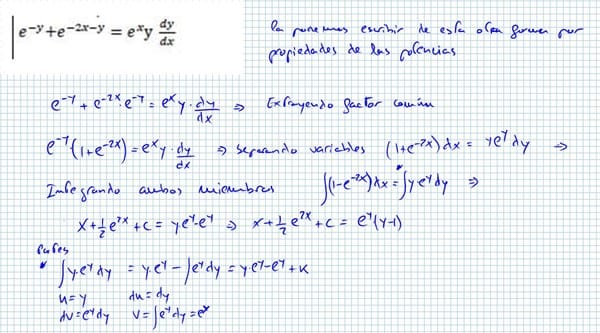 e^{-y}+e^{-2x-y} = e^x y dy/dx
la ponemos escribir de esta otra forma por
propiedades de las potencias
e^{-y} + e^{-2x}·e^{-y} = e^x y · dy/dx ⇒ Extrayendo factor común
e^{-y}(1+e^{-2x}) = e^x y · dy/dx ⇒ separando variables (1+e^{-2x})dx = ye^y dy ⇒
Integrando ambos miembros ∫(1-e^{-2x})dx = ∫ye^y dy ⇒
x+½e^{2x} + C = ye^y-e^y ⇒ x+½e^{2x} + C = e^y(y-1)
* ∫y·e^y dy = y·e^y - ∫e^y dy = y·e^y - e^y + K
u=y du=dy
dv=e^y dy v=∫e^y dy=e^y